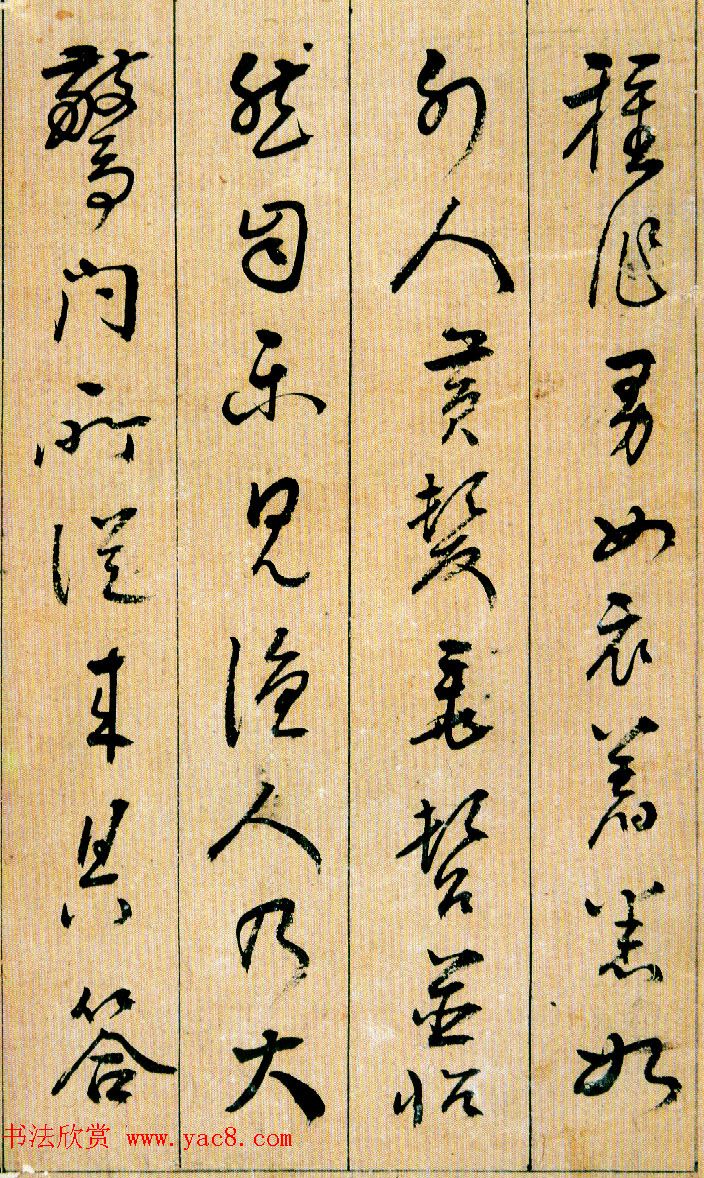 種作男女衣著悉如
外人黃髮垂髫並怡
然自樂見漁人乃大
驚問所從來具答
书法欣赏 www.yac8.com